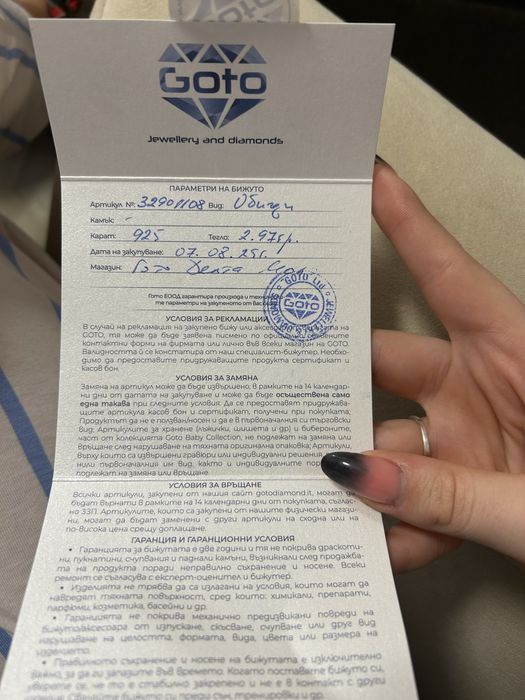 Goto
Jewellery and diamonds
ПАРАМЕТРИ НА БИЖУТО
Артикул №: 32901108 Вид: Обици
Камък: -
Карат: 925 Тегло: 2.97гр.
Дата на закупуване: 07.08.25г.
Магазин: Гото Делта
Гото ЕООД гарантира произхода и
те параметри на закупеното от Вас
GOTO Ltd.
Goto
УСЛОВИЯ ЗА РЕКЛАМАЦИЯ
В случай на рекламация на закупено бижу или аксесоар на
GOTO, тя може да бъде заявена писмено по официално
контактни форми на фирмата или лично във всеки магазин на GOTO.
Валидността ѝ се констатира от наш специалист-бижутер. Необхо-
димо да предоставите придружаващите продукта сертификат и
касов бон.
УСЛОВИЯ ЗА ЗАМЯНА
Замяна на артикул може да бъде извършена, в рамките на 14 календар-
ни дни от датата на закупуване и може да бъде осъществена само
една такава при следните условия: Да се предоставят придружава-
щите артикула касов бон и сертификат, получени при покупката;
Продуктът да не е ползван/носен и да е в първоначалния си търговски
вид; Артикулите за хранене (лъжички, шишета и др) и биберони,
част от колекцията Goto Baby Collection, не подлежат на замяна или
връщане след нарушаване на тяхната оригинална опаковка; Артикули,
върху които са извършени гравюри или индивидуални решения,
нили първоначалния им вид, както и индивидуалните
подлежат на замяна или връщане.
УСЛОВИЯ ЗА ВРЪЩАНЕ
Всички артикули, закупени от нашия сайт gotodiamond.it, могат да
бъдат върнати в рамките на 14 календарни дни от покупката, съглас-
но ЗЗП. Артикулите, които са закупени от нашите физически магази-
ни, могат да бъдат заменени с други артикули на сходна или на
по-висока цена срещу доплащане.
ГАРАНЦИЯ И ГАРАНЦИОННИ УСЛОВИЯ
• Гаранцията за бижутата е две години и тя не покрива драскоти-
ни, пукнатини, счупвания и паднали камъни, възникнали след продажба-
та на продукта поради неправилно съхранение и носене. Всеки
ремонт се съгласува с експерт-оценител и бижутер.
• Изделията не трябва да са излагани на условия, които могат да
навредят тяхната повърхност, сред които: химикали, препарати,
парфюми, козметика, басейни и др.
• Гаранцията не покрива механично предизвикани повреди на
бижутао/аксесоара от изпускане, скъсване, счупване или друг вид
нарушаване на целостта, формата, вида, цвета или размера на
изделието.
• Правилното съхранение и носене на бижутата е изключително
важно, за да ги запазите във времето. Когато поставяте бижуто си,
уверете се, че то е стабилно закрепено и не е в контакт с други